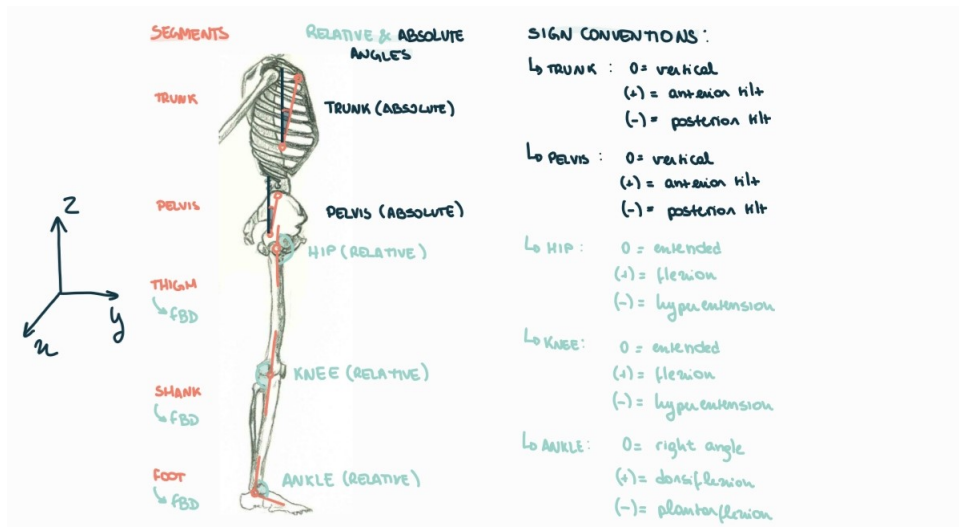 SEGMENTS
TRUNK
PELVIS
THIGH
FBD
SHANK
FBD
FOOT
FBD
z
y
x
RELATIVE & ABSOLUTE
ANGLES
TRUNK (ABSOLUTE)
PELVIS (ABSOLUTE)
HIP (RELATIVE)
KNEE (RELATIVE)
ANKLE (RELATIVE)
SIGN CONVENTIONS:
↳ TRUNK: 0= vertical
(+)= anterior tilt
(-)= posterior tilt
↳ PELVIS: 0= vertical
(+)= anterior tilt
(-)= posterior tilt
↳ HIP: 0= extended
(+)= flexion
(-)= hyperextension
↳ KNEE: 0= extended
(+)= flexion
(-)= hyperextension
↳ ANKLE: 0= right angle
(+)= dorsiflexion
(-)= plantarflexion